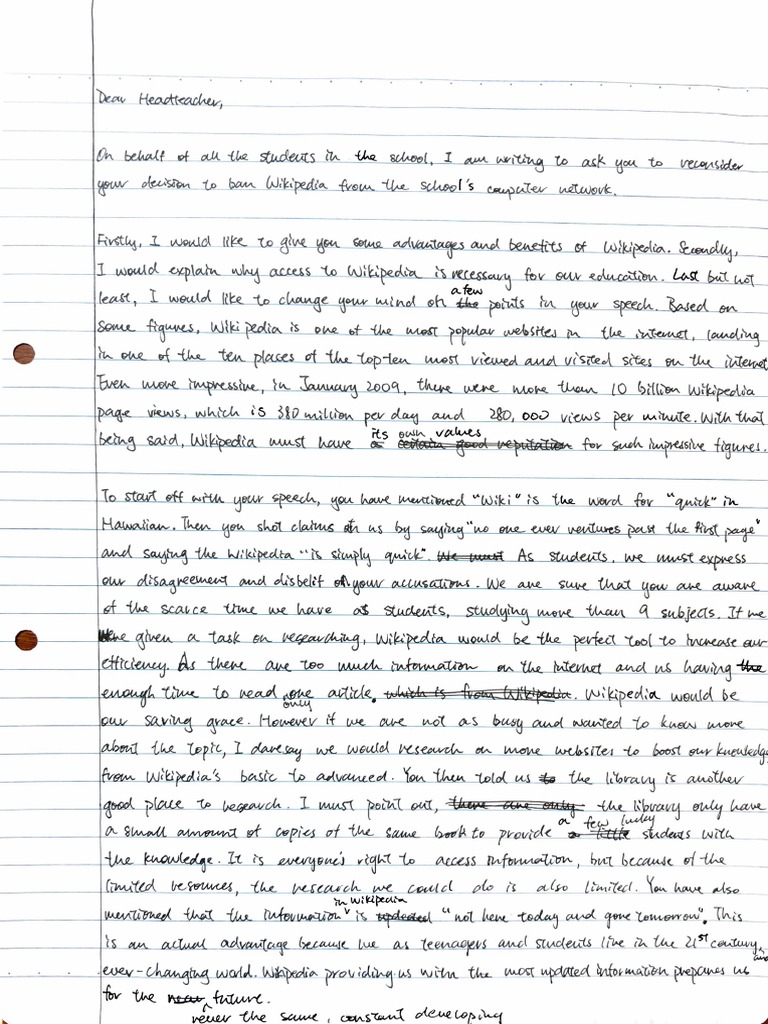 Dear Headteacher,
On behalf of all the students in the school, I am writing to ask you to reconsider
your decision to ban Wikipedia from the school's computer network.
Firstly, I would like to give you some advantages and benefits of Wikipedia. Secondly,
I would explain why access to Wikipedia is necessary for our education. Last but not
least, I would like to change your mind on a few points in your speech. Based on
some figures, Wikipedia is one of the most popular websites in the internet, landing
in one of the ten places of the top-ten most viewed and visited sites on the internet
Even more impressive, in January 2009, there were more than 10 billion Wikipedia
page views, which is 380 million per day and 280,000 views per minute. With that
being said, Wikipedia must have its own values for such impressive figures.
To start off with your speech, you have mentioned "Wiki" is the word for "quick" in
Hawaiian. Then you shot claims at us by saying "no one ever ventures past the first page"
and saying the Wikipedia "is simply quick". As students, we must express
our disagreement and disbelif of your accusations. We are sure that you are aware
of the scarce time we have as students, studying more than 9 subjects. If we
were given a task on researching, Wikipedia would be the perfect tool to increase our
efficiency. As there are too much information on the internet and us having
enough time to read only one article. Wikipedia would be
our saving grace. However if we are not as busy and wanted to know more
about the topic, I daresay we would research on more websites to boost our knowledge
from Wikipedia's basic to advanced. You then told us the library is another
good place to research. I must point out, the library only have
a small amount of copies of the same book to provide a few lucky students with
the knowledge. It is everyone's right to access information, but because of the
limited resources, the research we could do is also limited. You have also
mentioned that the information in Wikipedia is "not here today and gone tomorrow". This
is an actual advantage because we as teenagers and students live in the 21st century, and
ever-changing world. Wikipedia providing us with the most updated information prepares us
for the future.
never the same, constant developing